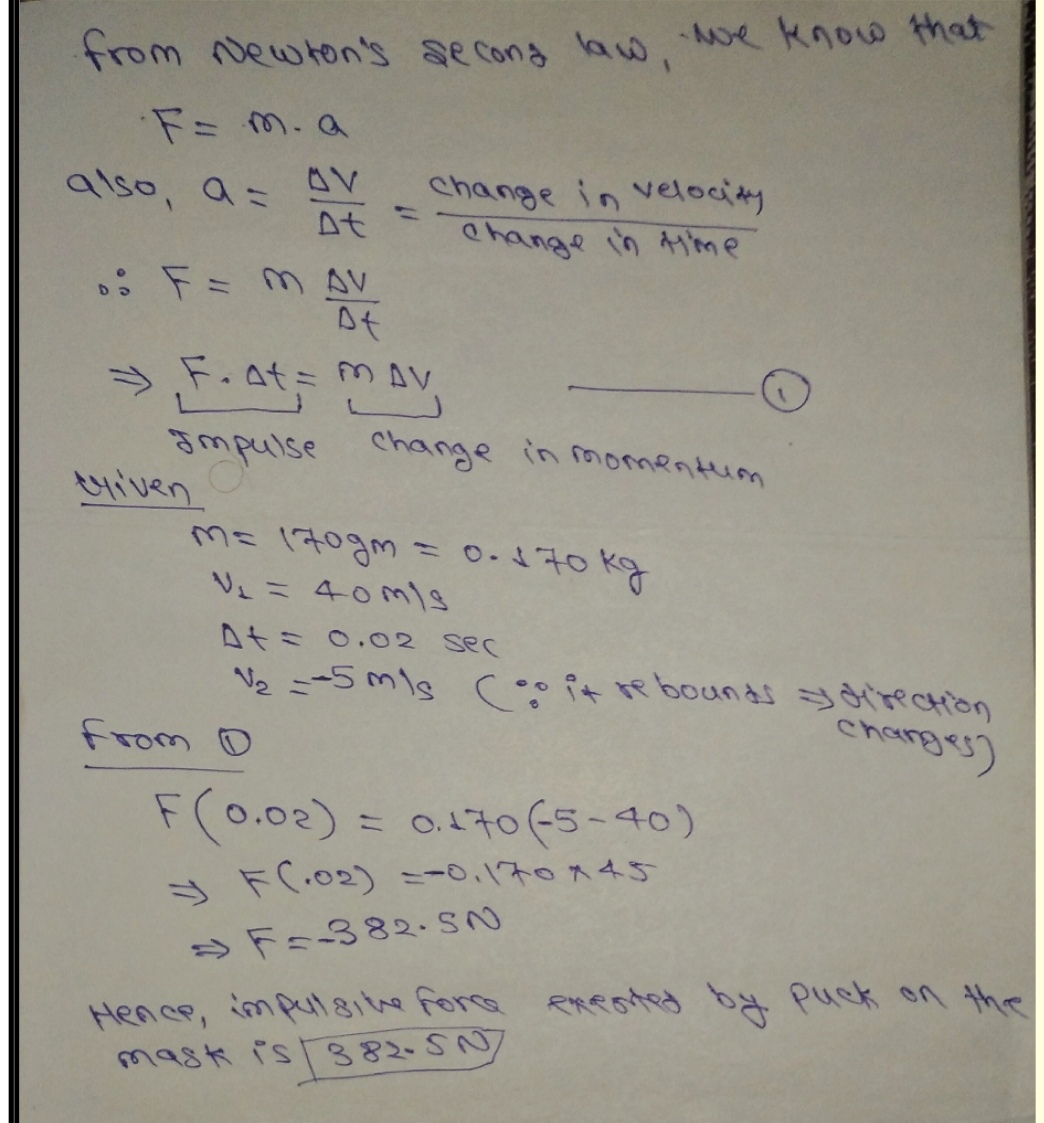 from Newton's second law, we know that
F = m. a
also, a = ΔV/Δt = change in velocity/change in time
∴ F = m ΔV/Δt
⇒ F. Δt = m ΔV ——— ①
Impulse change in momentum
Given
m = 170gm = 0.170 kg
V₁ = 40 m/s
Δt = 0.02 sec
V₂ = -5 m/s (∵ it rebounds ⇒ direction
changes)
from ①
F(0.02) = 0.170(-5-40)
⇒ F(.02) = -0.170 × 45
⇒ F = -382.5N
Hence, impulsive force exerted by puck on the
mask is 382.5N